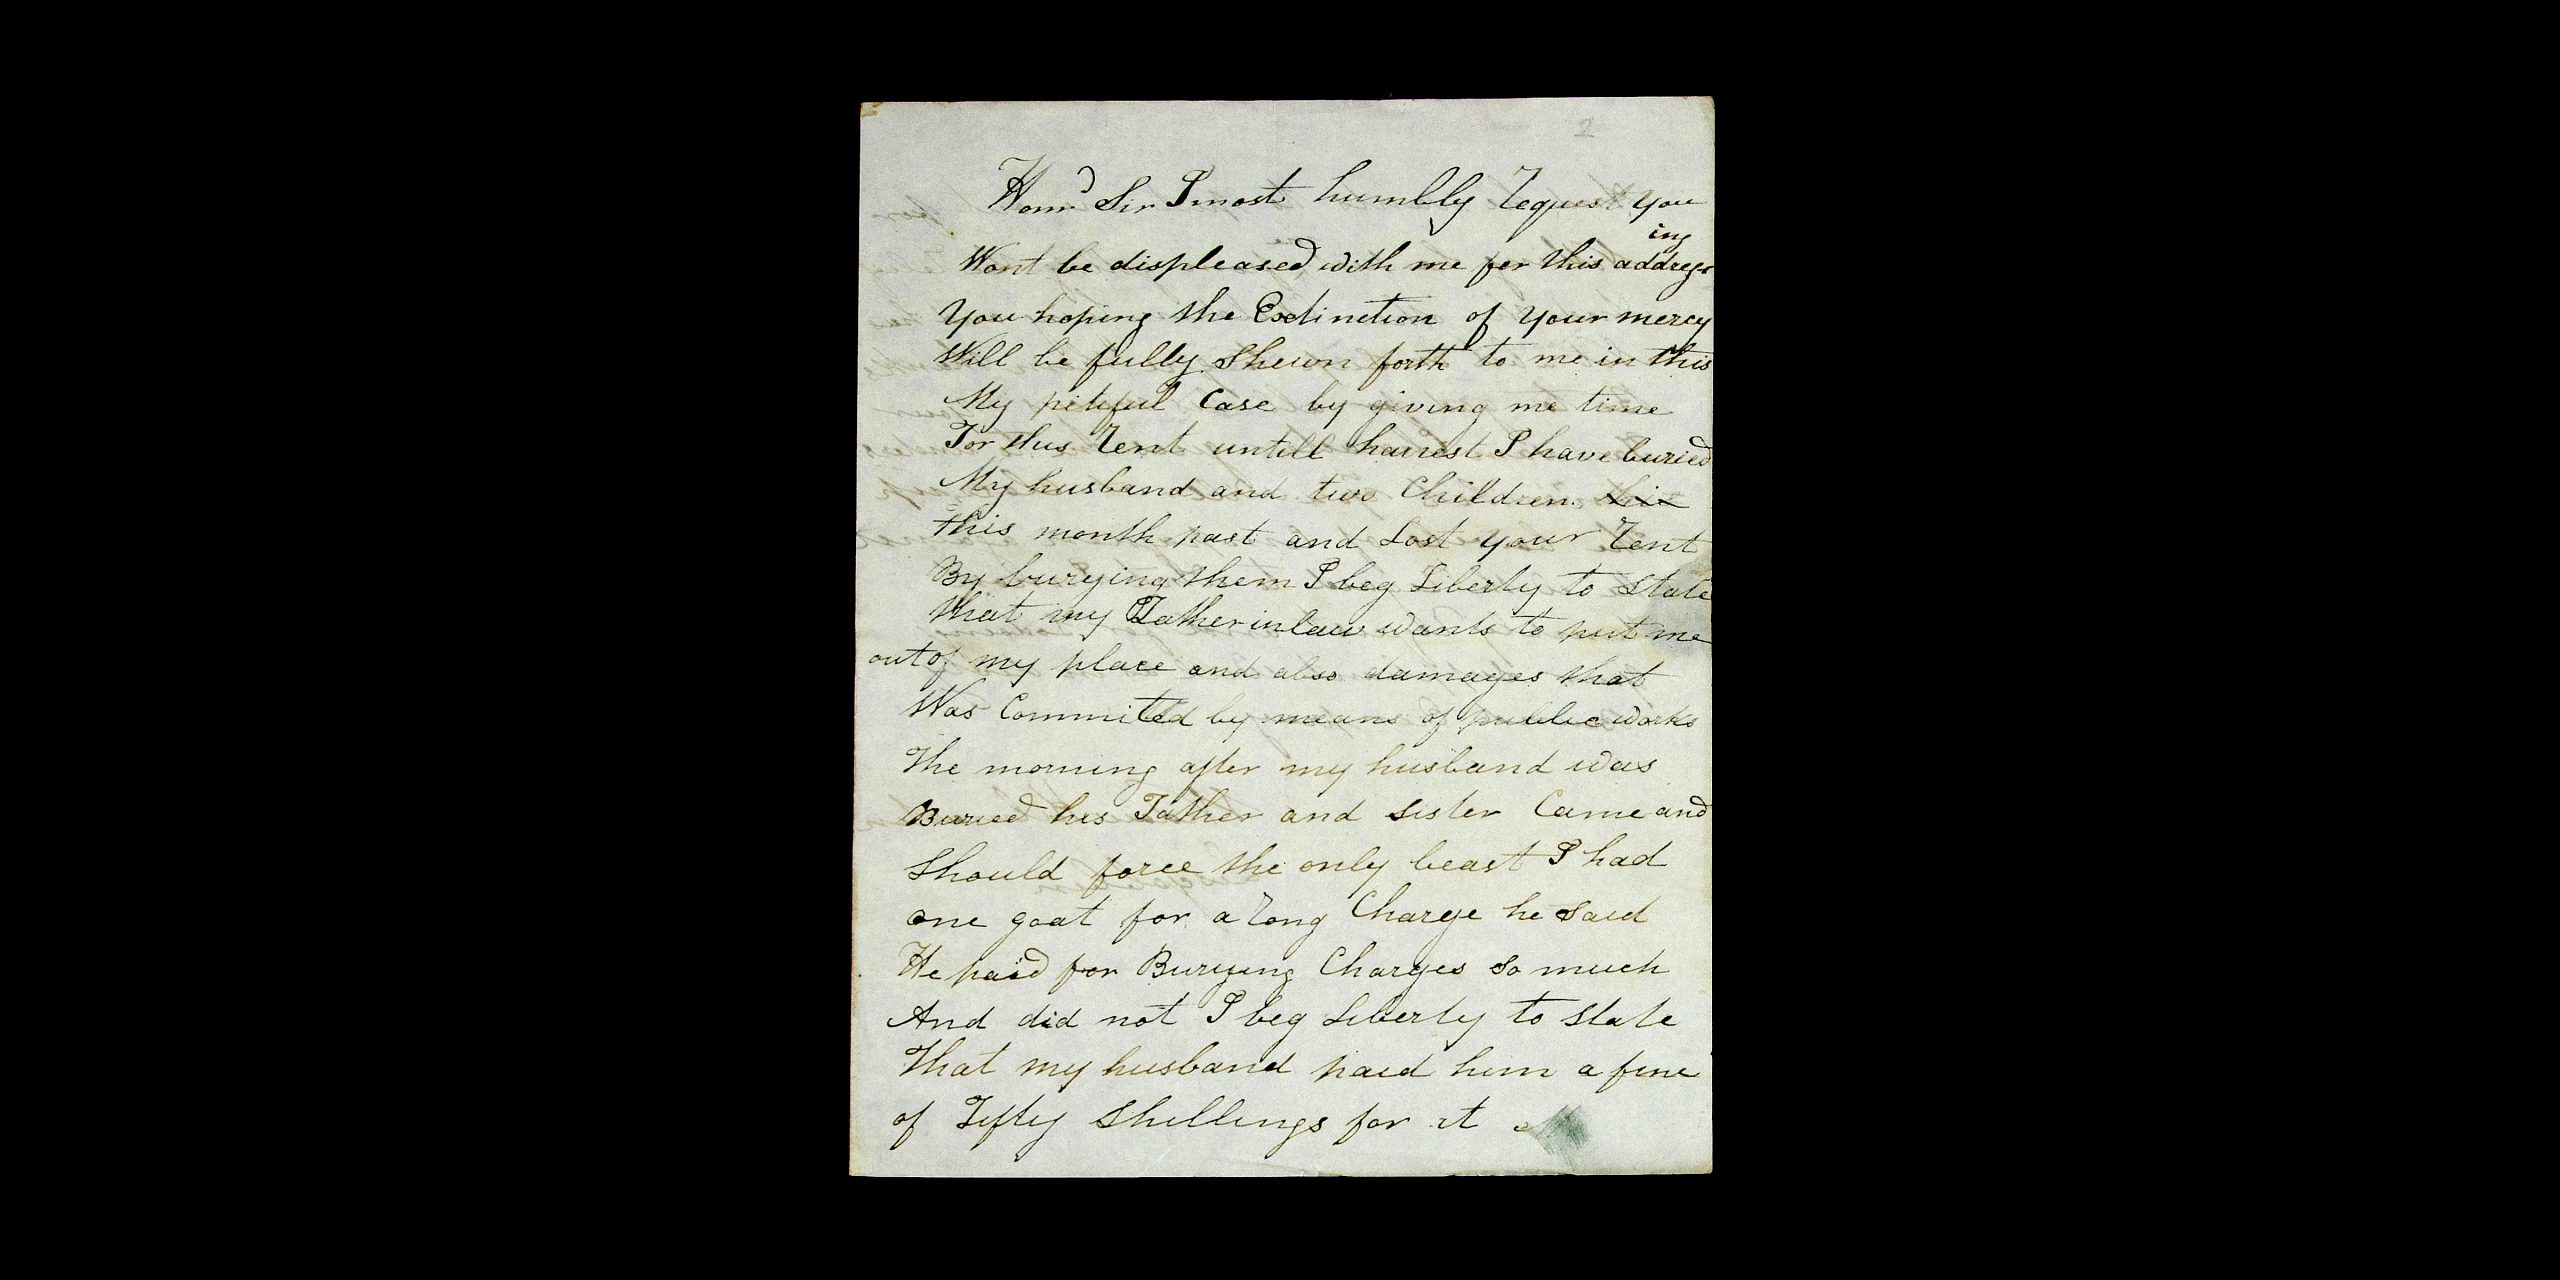 2
Honrd Sir I most humbly request you
Wont be displeased with me for this address
ing
You hoping the Extinction of your mercy
Will be fully shewn forth to me in this
My pitiful Case by giving me time
For this rent untill harvest I have buried
My husband and two Children
this month past and Lost your rent
By burying them I beg Liberty to state
that my Fatherinlaw wants to put me
out of my place and also damages that
Was Commited by means of public works
The morning after my husband was
Buried his Father and sister Came and
Should force the only beast I had
one goat for a rong Charge he said
He paid for Burying Charges so much
And did not I beg Liberty to state
That my husband paid him a fine
of Fifty Shillings for it